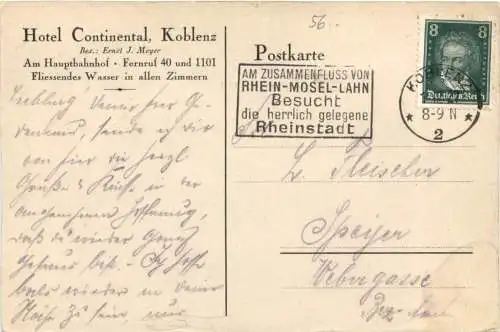 56.
Hotel Continental, Koblenz
Bes.: Ernst J. Meyer
Am Hauptbahnhof • Fernruf 40 und 1101
Fliessendes Wasser in allen Zimmern
Postkarte
AM ZUSAMMENFLUSS VON
RHEIN-MOSEL-LAHN
Besucht
die herrlich gelegene
Rheinstadt
8 8
Deutsches Reich
KOBLENZ
* 8-9 N *
2
Liebling! Deiner
sende ich Dir
von hier die herzl
Grüße & Küsse in der
angenehmen Hoffnung,
daß du wieder ganz
bist. – Ich hoffe
bald wieder in Deiner
Nähe zu sein, nur
Fleischer
Speyer
Webergasse